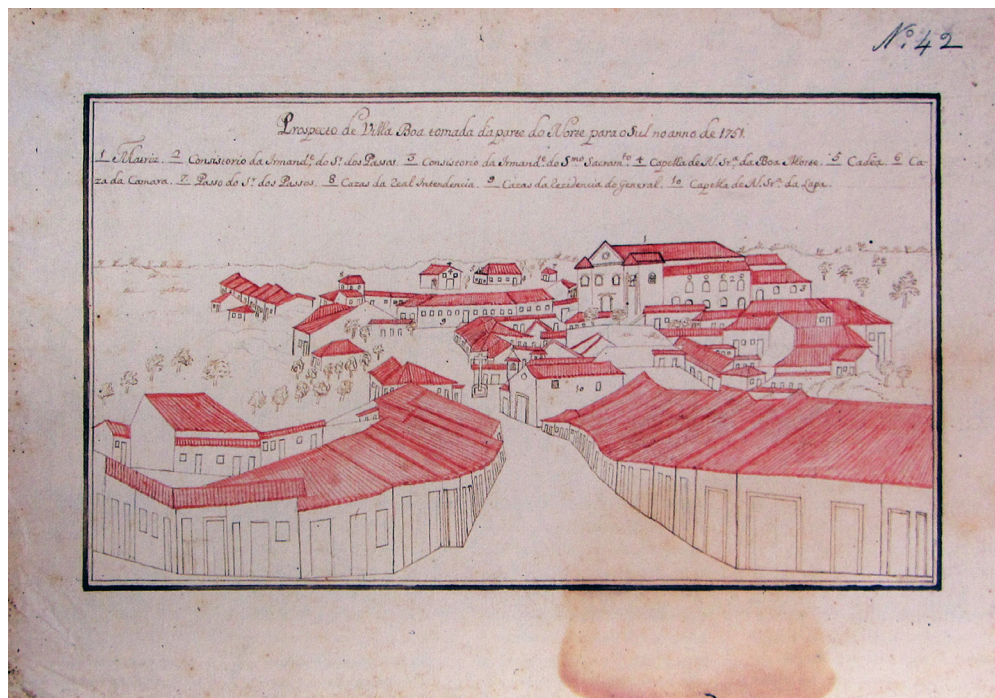 Nº 42
Prospecto de Villa Boa tomada da parte do Norte para o Sul no anno de 1751.
1 Matriz. 2 Consistorio da Irmand.e do S.r dos Passos. 3 Consistorio da Irmand.e do S.mo Sacram.to 4 Capella de N. Sr.a da Boa Morte. 5 Cadêa. 6 Ca-
za da Camara. 7 Passo do S.r dos Passos. 8 Cazas da Real Intendencia. 9 Cazas da Rezidencia do General. 10 Capella de N. Sr.a da Lapa.
1
4
9
10